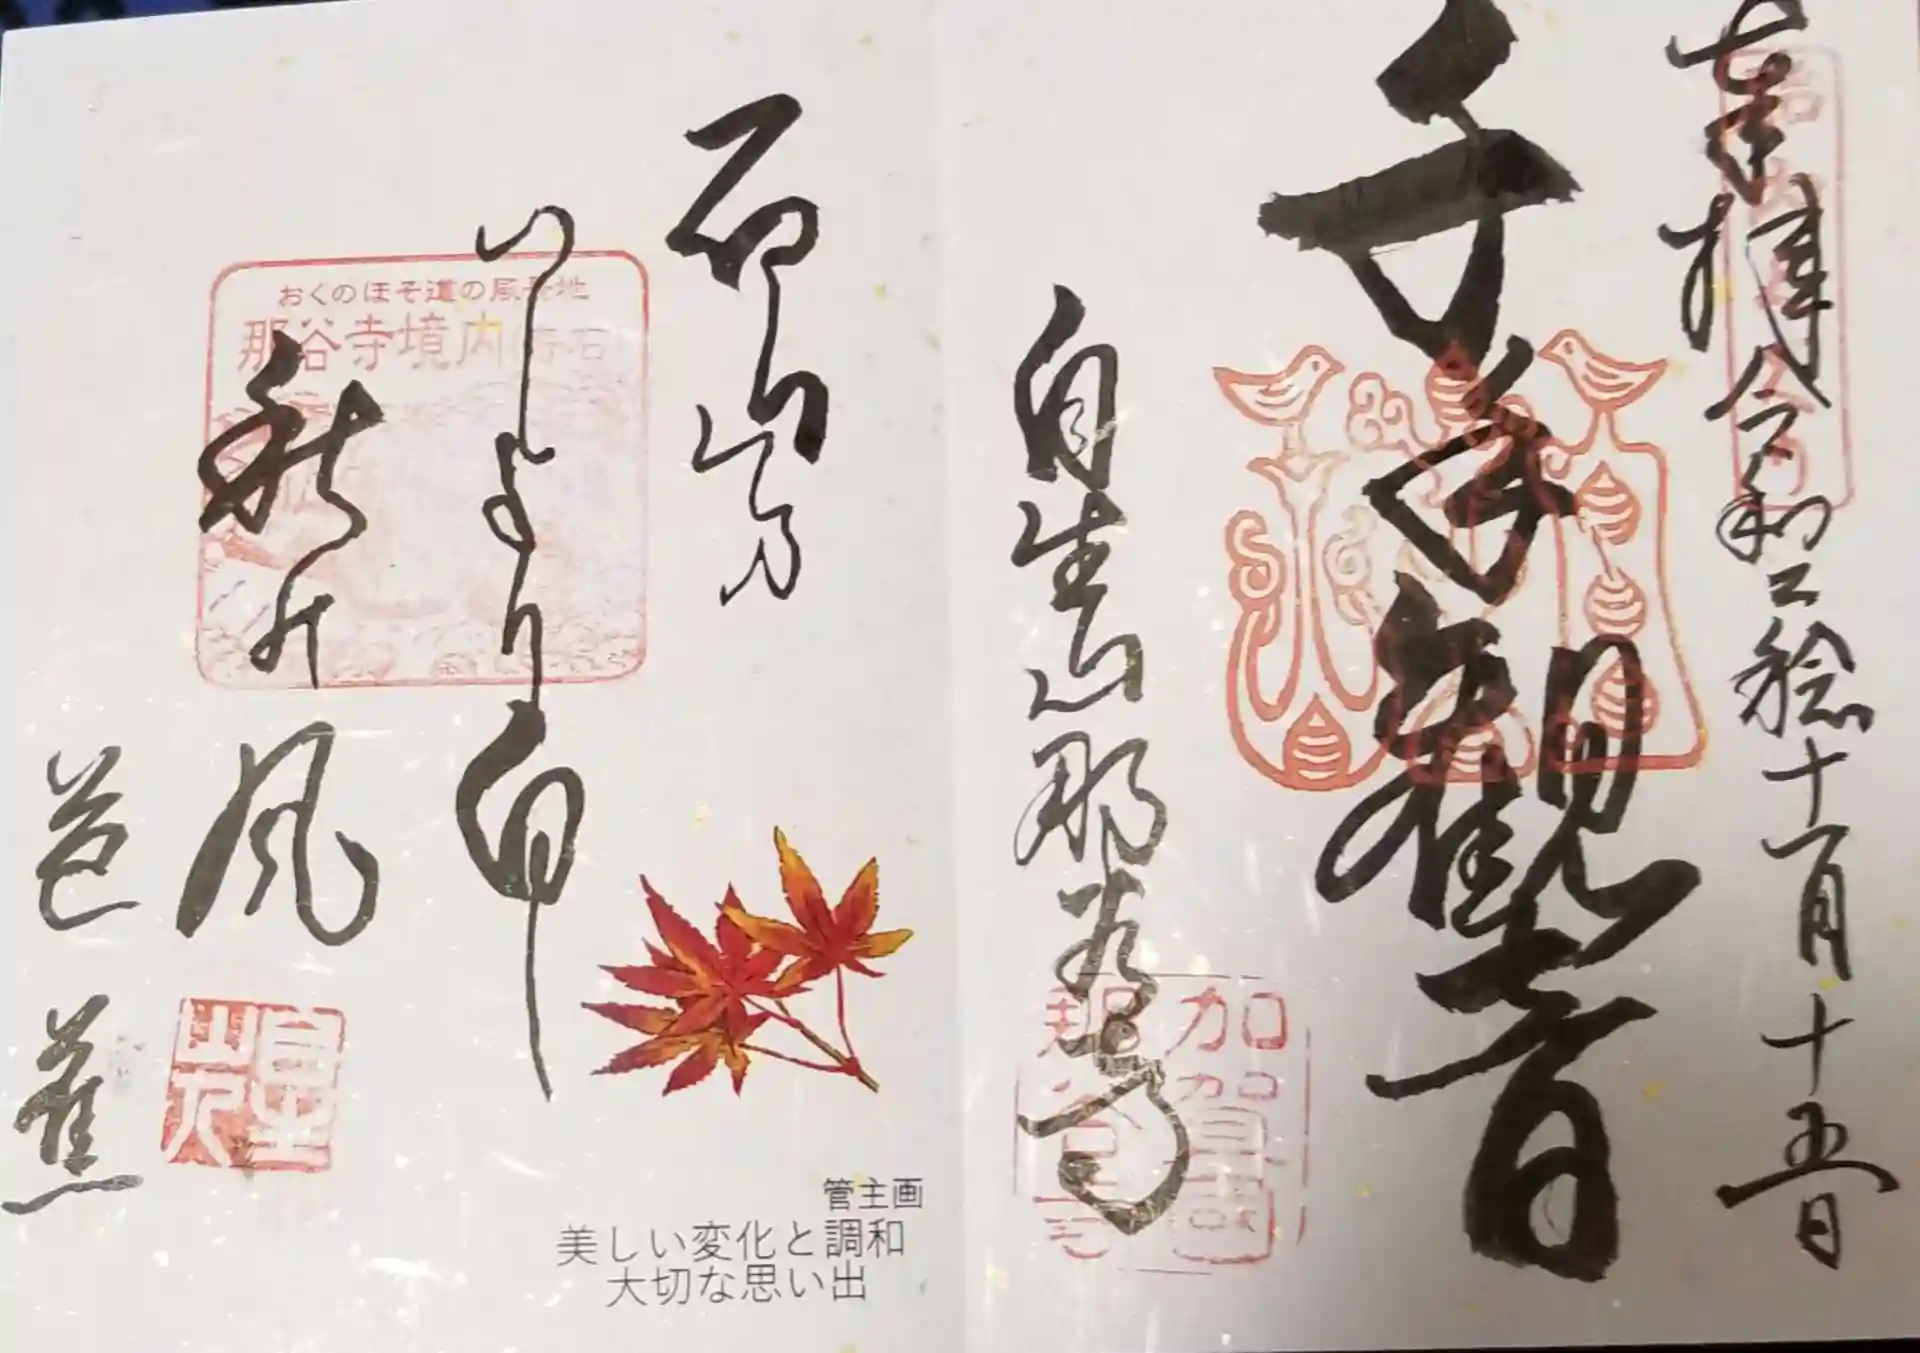 奉拝 令和二稔十一月十五日
千手観音
自生山那谷寺
加賀國
那谷寺
石山乃
いしより白し
秋の風
芭蕉
おくのほそ道の風景地
那谷寺境内(奇石)
管主画
美しい変化と調和
大切な思い出